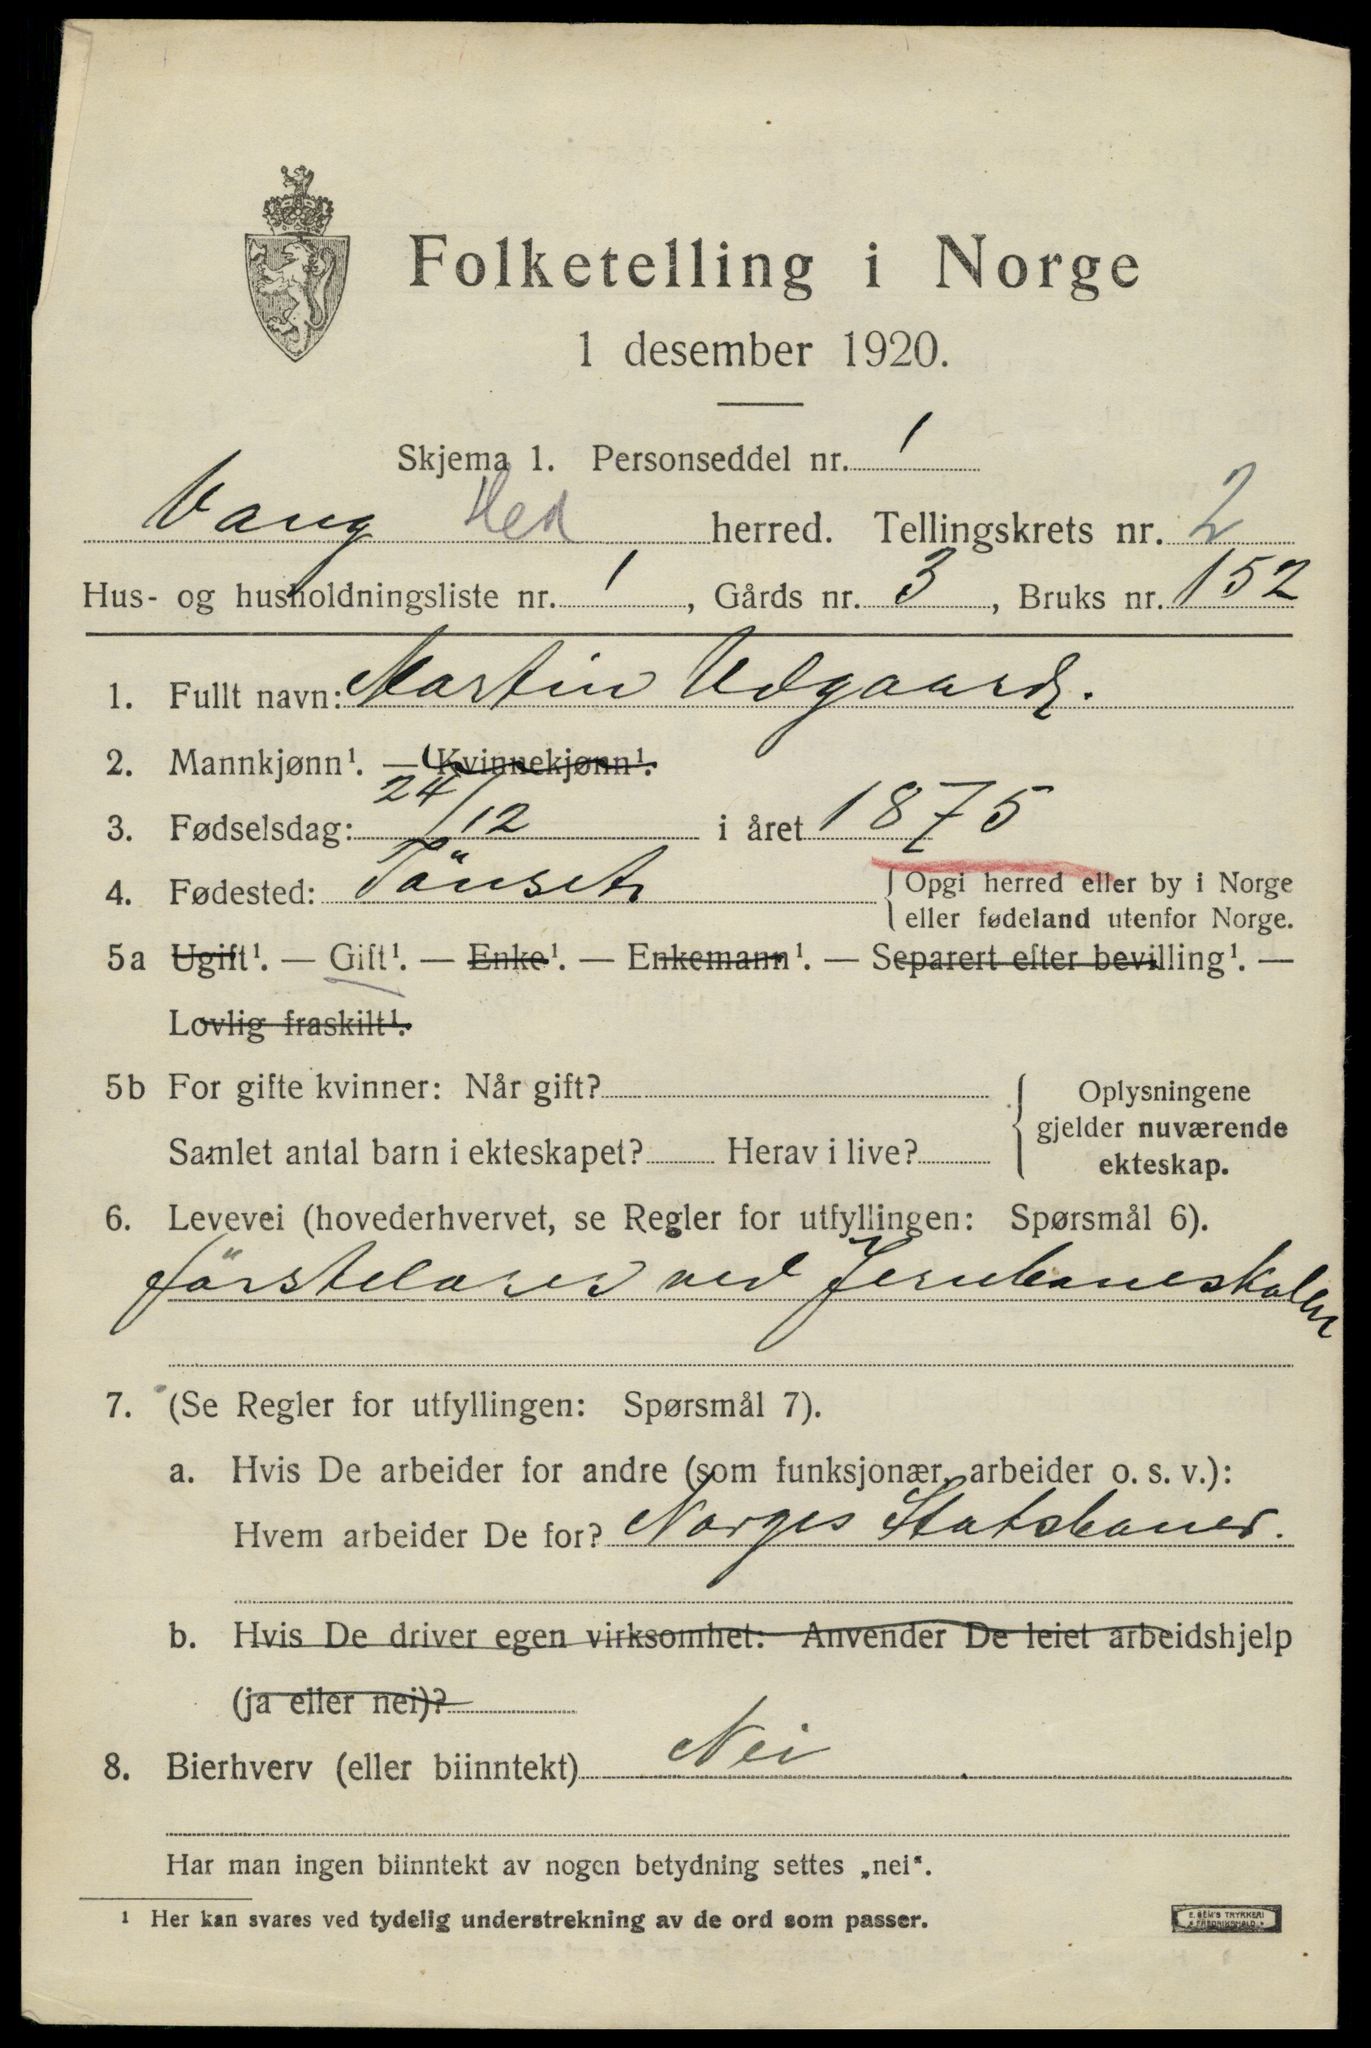 Folketelling i Norge
1 desember 1920.
Skjema 1. Personseddel nr. 1
Vang Hed herred. Tellingskrets nr. 2
Hus- og husholdningsliste nr. 1, Gårds nr. 3, Bruks nr. 152
1. Fullt navn: Martin Udgaard.
2. Mannkjønn¹. — Kvinnekjønn¹.
3. Fødselsdag: 24/12 i året 1875
4. Fødested: Tönset { Opgi herred eller by i Norge
eller fødeland utenfor Norge.
5a Ugift¹. — Gift¹. — Enke¹. — Enkemann¹. — Separert efter bevilling¹. —
Lovlig fraskilt¹.
5b For gifte kvinner: Når gift? { Oplysningene
gjelder nuværende
Samlet antal barn i ekteskapet? Herav i live? ekteskap.
6. Levevei (hovederhvervet, se Regler for utfyllingen: Spørsmål 6).
förstelærer ved Jernbaneskolen
7. (Se Regler for utfyllingen: Spørsmål 7).
a. Hvis De arbeider for andre (som funksjonær, arbeider o. s. v.):
Hvem arbeider De for? Norges Statsbaner.
b. Hvis De driver egen virksomhet: Anvender De leiet arbeidshjelp
(ja eller nei)?
8. Bierhverv (eller biinntekt) Nei
Har man ingen biinntekt av nogen betydning settes „nei“.
¹ Her kan svares ved tydelig understrekning av de ord som passer.
E. SEM'S TRYKKERI
FREDRIKSHALD